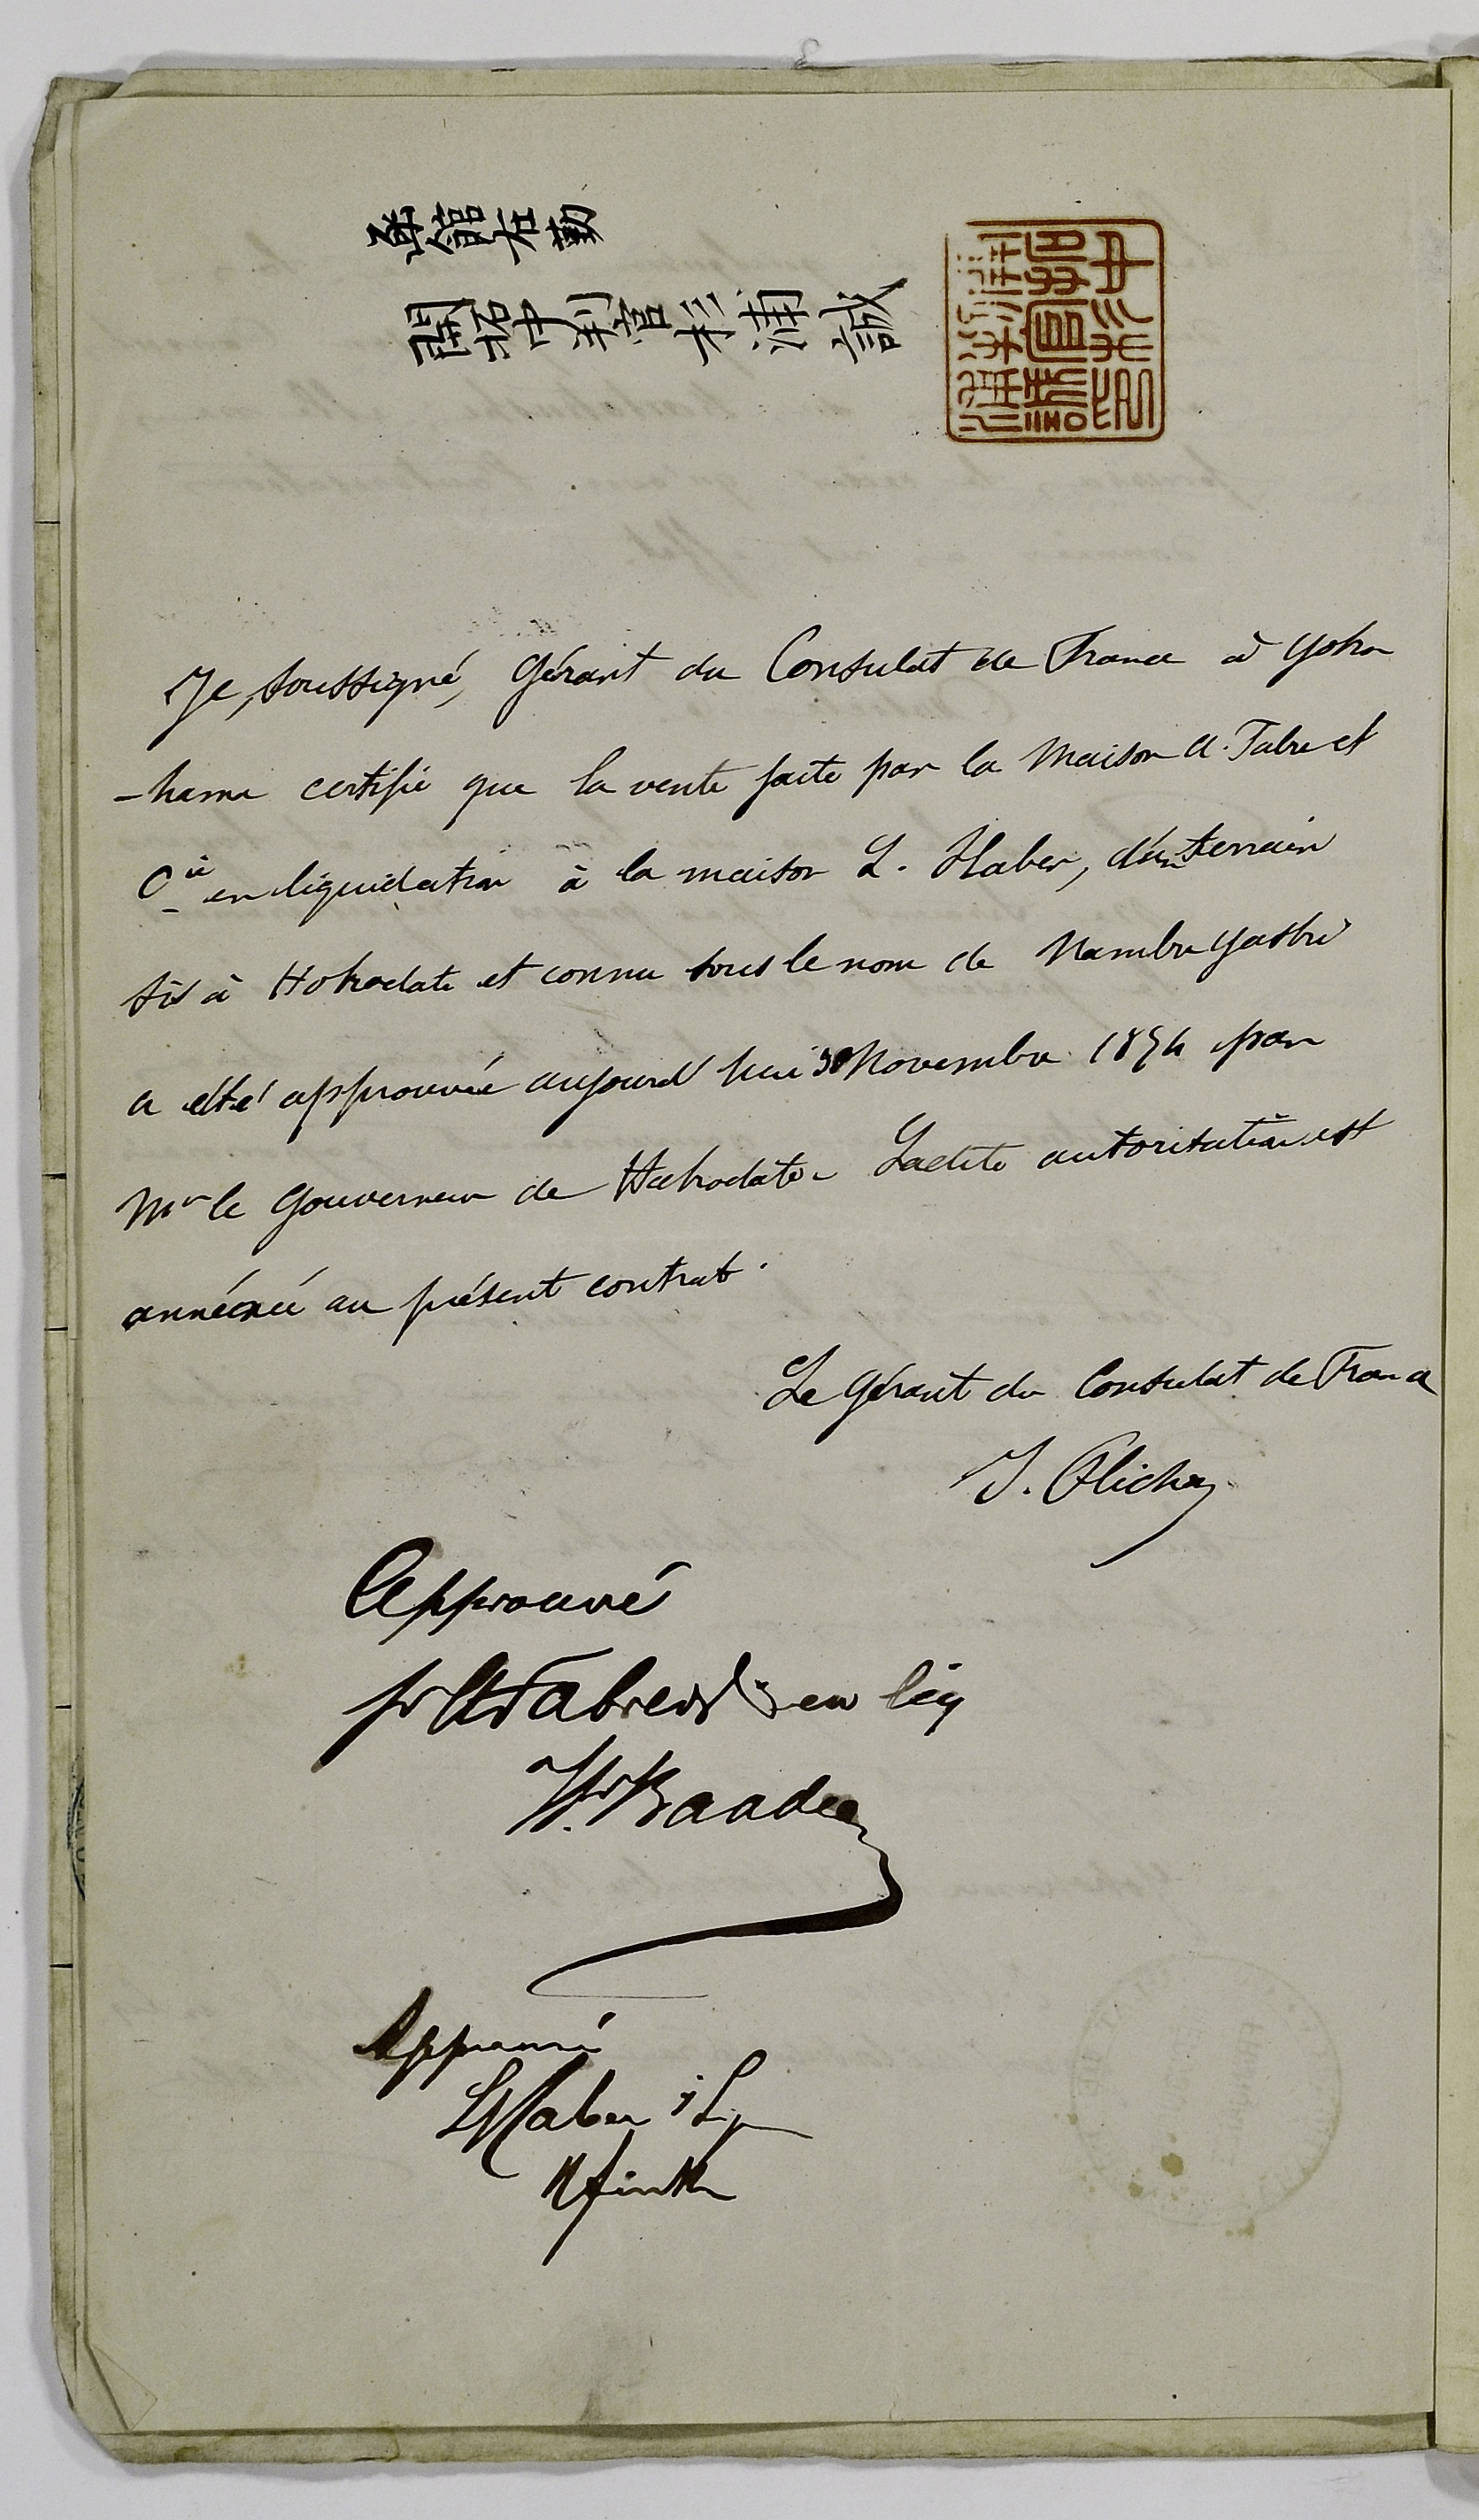 函館在勤
開拓中判官杉浦誠
Je, soussigné, Gérant du Consulat de France à Yoko
-hama certifie que la vente faite par la Maison A. Fabre et
Cie en liquidation à la maison L. Haber, d'un terrain
sis à Hokodate et connu sous le nom de Nambu Yashi
a été approuvée aujourd'hui 30 Novembre 1874 par
Mr le Gouverneur de Hakodate. Ladite autorisation est
annexée au présent contrat.
Le Gérant du Consulat de France
Approuvé
pr A Fabre & Cie en liq
Approuvé
L Haber